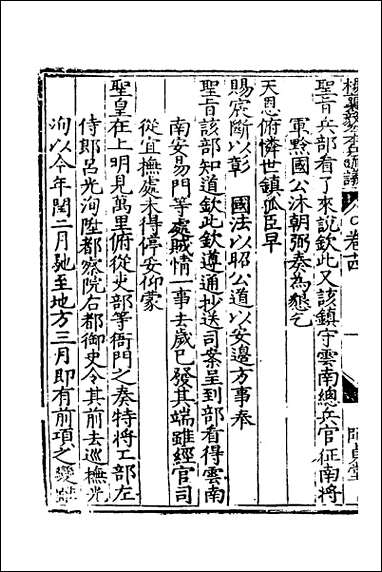 卷十四
聖旨兵部看了來說欽此又該鎮守雲南總兵官征南將
軍黔國公沐朝弼奏為懇乞
天恩俯憐世鎮孤臣早
賜宸斷以彰 國法以昭公道以安邊方事奉
聖旨該部知道欽此欽遵通抄送司案呈到部看得雲南
南安易門等處賊情一事去歲已發其端雖經官司
從宜撫處未得停妥仰蒙
聖皇在上明見萬里俯從吏部等衙門之奏特將工部左
侍郎呂光洵陞都察院右都御史令其前去巡撫光
洵以今年閏二月馳至地方三月即有前項之變雖